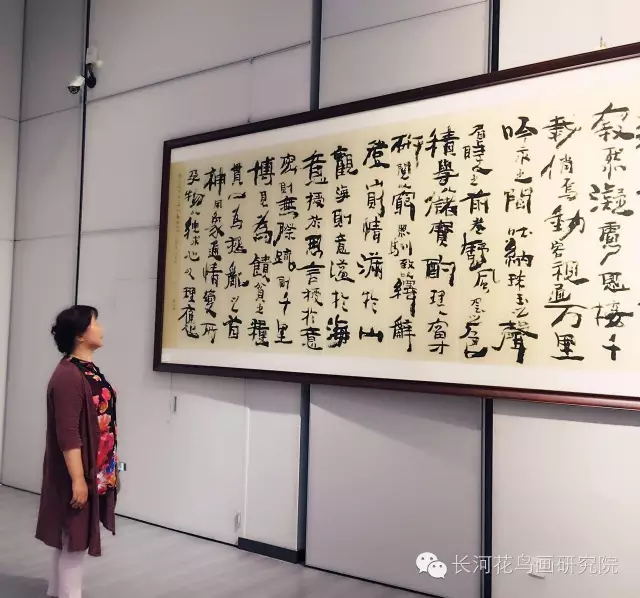 寂然凝慮思接千
載悄焉動容視通万里
吟詠之間吐納珠玉之聲
眉睫之前卷舒風雲之色
積學以儲寶酌理以富才
研閱以窮照馴致以繹辭
登山則情滿於山
觀海則意溢於海
意授於思言授於意
密則無際疏則千里
博見為饋貧之糧
貫一為拯亂之
神用象通情變所
孕物以貌求心以理應
长河花鸟画研究院